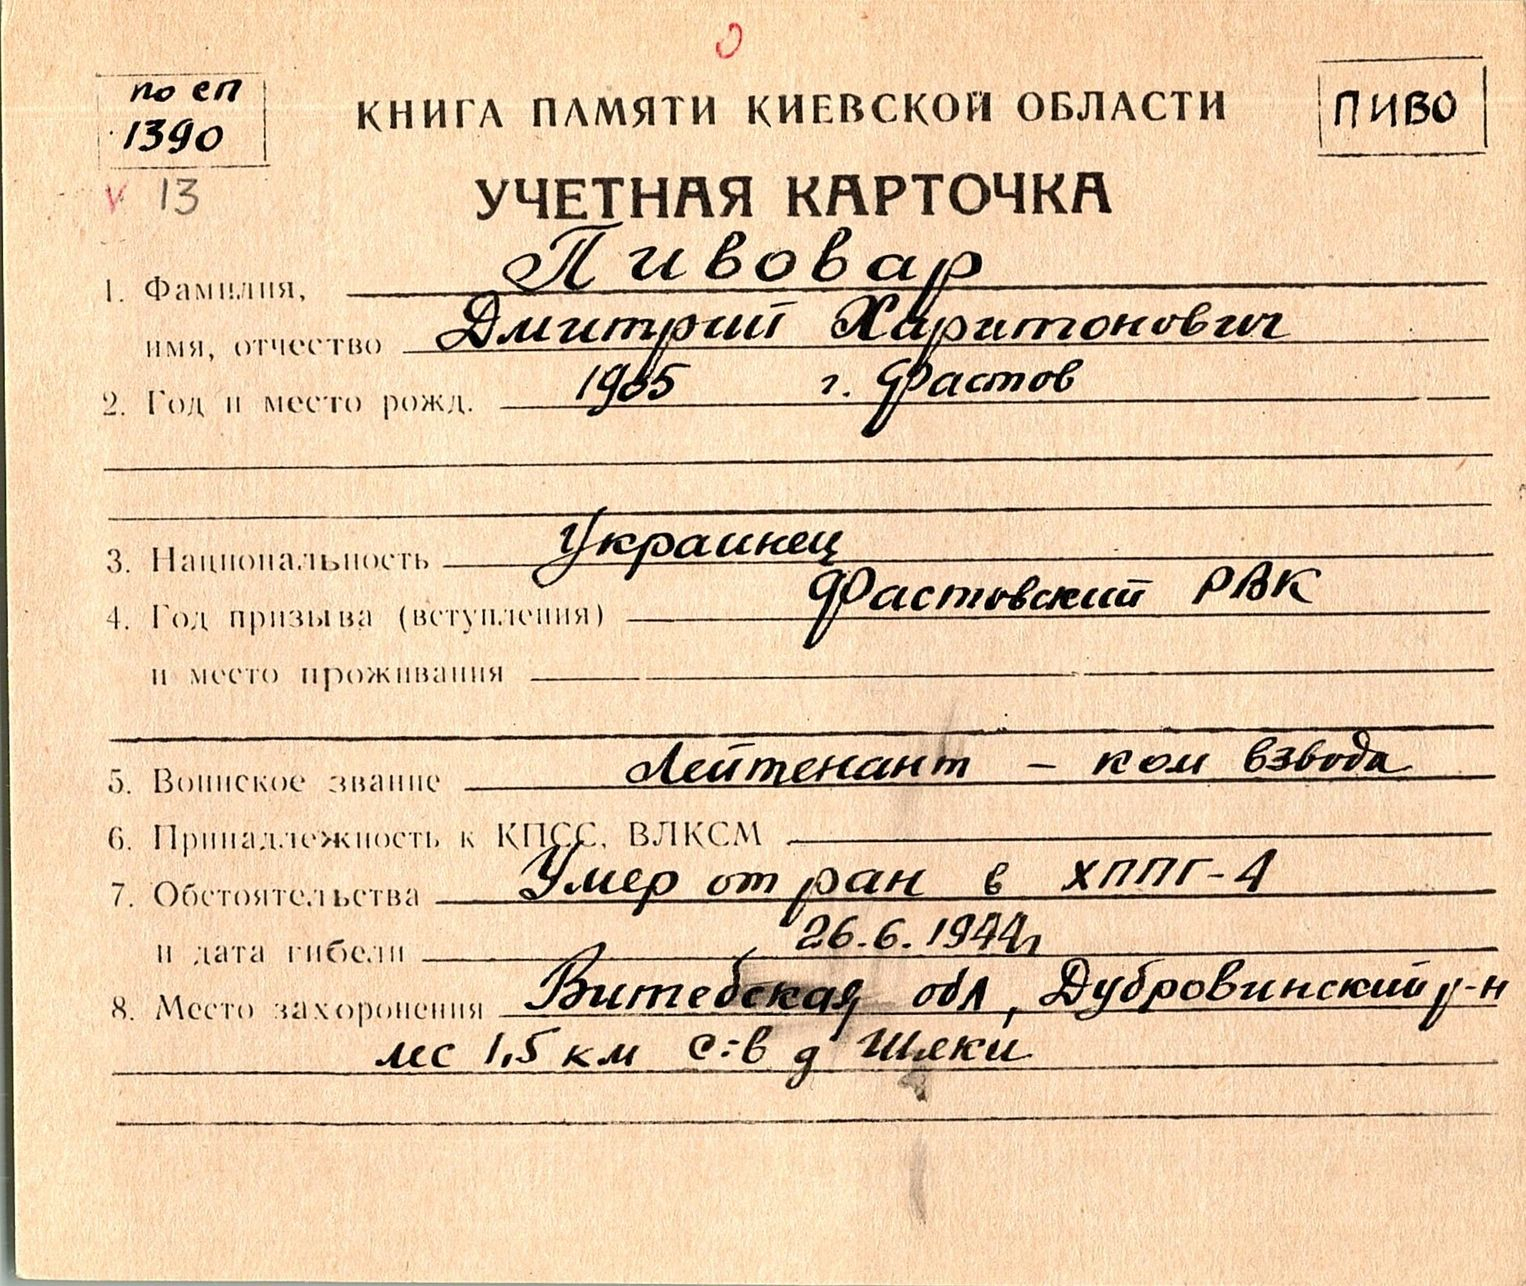 по СП
1390
КНИГА ПАМЯТИ КИЕВСКОЙ ОБЛАСТИ
ПИВО
V 13
УЧЕТНАЯ КАРТОЧКА
1. Фамилия, Пивовар
имя, отчество Дмитрий Харитонович
2. Год и место рожд. 1905 г. Фастов
3. Национальность Украинец
4. Год призыва (вступления) Фастовский РВК
и место проживания
5. Воинское звание Лейтенант - ком взвода
6. Принадлежность к КПСС, ВЛКСМ
7. Обстоятельства Умер от ран в ХППГ-4
и дата гибели 26.6.1944г
8. Место захоронения Витебская обл, Дубровинский р-н
лес 1,5 км с-в д Шеки